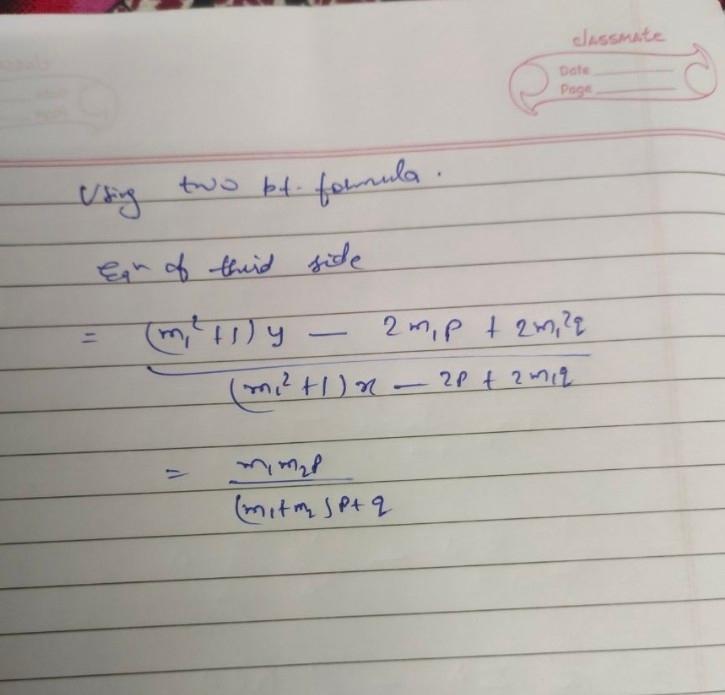 classmate
Date
Page
Using two pt. formula.
Eqn of third side
= (m₁² + 1) y — 2m₁p + 2m₁²q
(m₁² + 1) x — 2p + 2m₁q
= m₁m₂p
(m₁+m₂)p+q